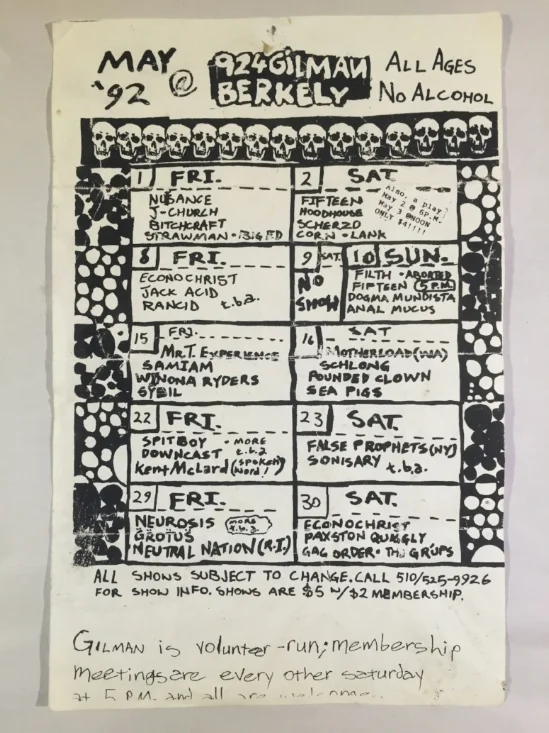 MAY '92 @ 924 GILMAN BERKELY
ALL AGES
NO ALCOHOL
1 FRI.
NUISANCE
J-CHURCH
BITCHCRAFT
STRAWMAN · BIG ED
2 SAT
FIFTEEN
HOODHOUSE
SCHERZO
CORN · LANK
Also, a play!
May 2 @ 6P.M.
May 3 @NOON
ONLY $4!!!!
8 FRI.
ECONOCHRIST
JACK ACID
RANCID t.b.a.
9 SAT.
NO
SHOW
10 SUN.
FILTH · ABORTED
FIFTEEN 5 P.M.
DOGMA MUNDISTA
ANAL MUCUS
15 FRI.
MR. T. EXPERIENCE
SAMIAM
WINONA RYDERS
SYBIL
16 SAT
MOTHERLOAD (WA)
SCHLONG
POUNDED CLOWN
SEA PIGS
22 FRI.
SPITBOY · MORE
DOWNCAST t.b.a
Kent McLard (spoken Word!)
23 SAT.
FALSE PROPHETS (NY)
SONISARY t.b.a.
29 FRI.
NEUROSIS more t.b.a.
GROTUS
NEUTRAL NATION (R.I.)
30 SAT.
ECONOCHRIST
PAXSTON QUIGGLY
GAG ORDER · GRUPS
ALL SHOWS SUBJECT TO CHANGE. CALL 510/525-9926
FOR SHOW INFO. SHOWS ARE $5 W/$2 MEMBERSHIP.
GILMAN is volunter-run; membership
meetings are every other saturday
at 5 P.M. and all are welcome..